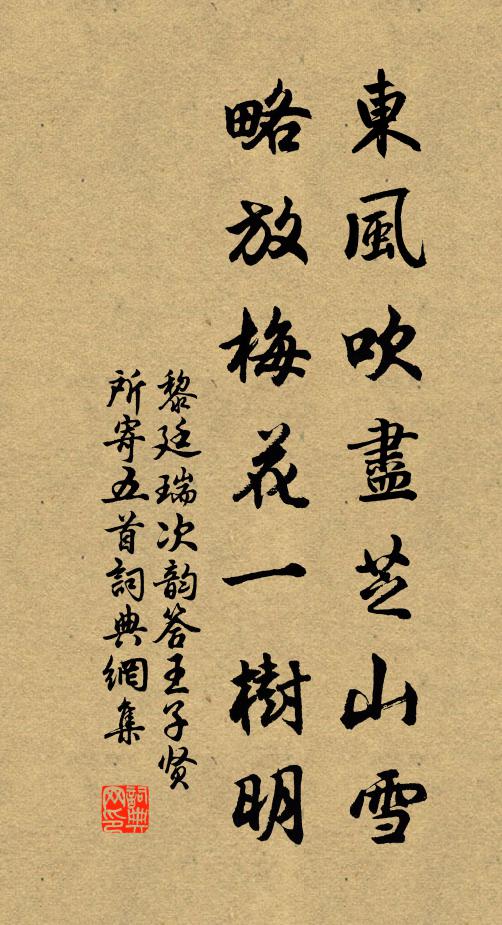 東風吹盡芝山雪
略放梅花一樹明
黎廷瑞次韵答王子贤
所寄五首詞典網集
詞典
网印